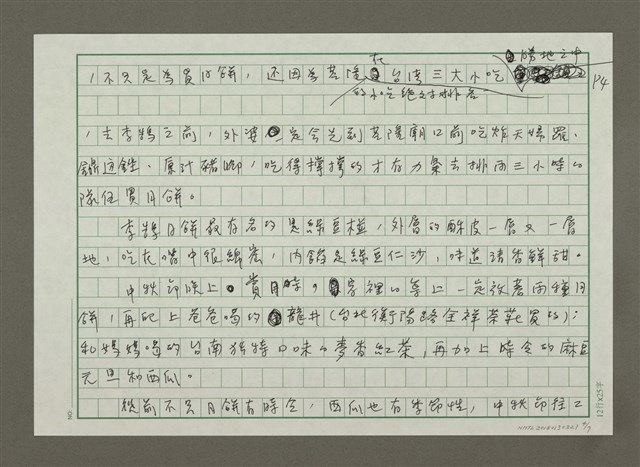 勝地之中
在
，不只是為買月餅，還因為基隆台灣三大小吃
P4
的小吃絕對排名
，去李鵠之前，外婆一定會先到基隆廟口前吃炸天婦羅、
鼎边銼、原汁豬腳，吃得撐撐的才有力氣去排兩三小時的
隊伍買月餅。
李鵠月餅最有名的是綠豆椪，外層的酥皮一層又一層
地，吃在嘴中很綿密，內餡是綠豆仁沙，味道清香鮮甜。
中秋節晚上賞月時，家裡的桌上一定放著兩種月
餅，再配上爸爸喝的龍井（台北衡陽路全祥茶莊買的）；
和媽媽喝的台南獨特口味的麥香紅茶，再加上時令的麻豆
文旦和西瓜。
從前不只月餅有時令，西瓜也有季節性，中秋節往往
12行×25字
NO.